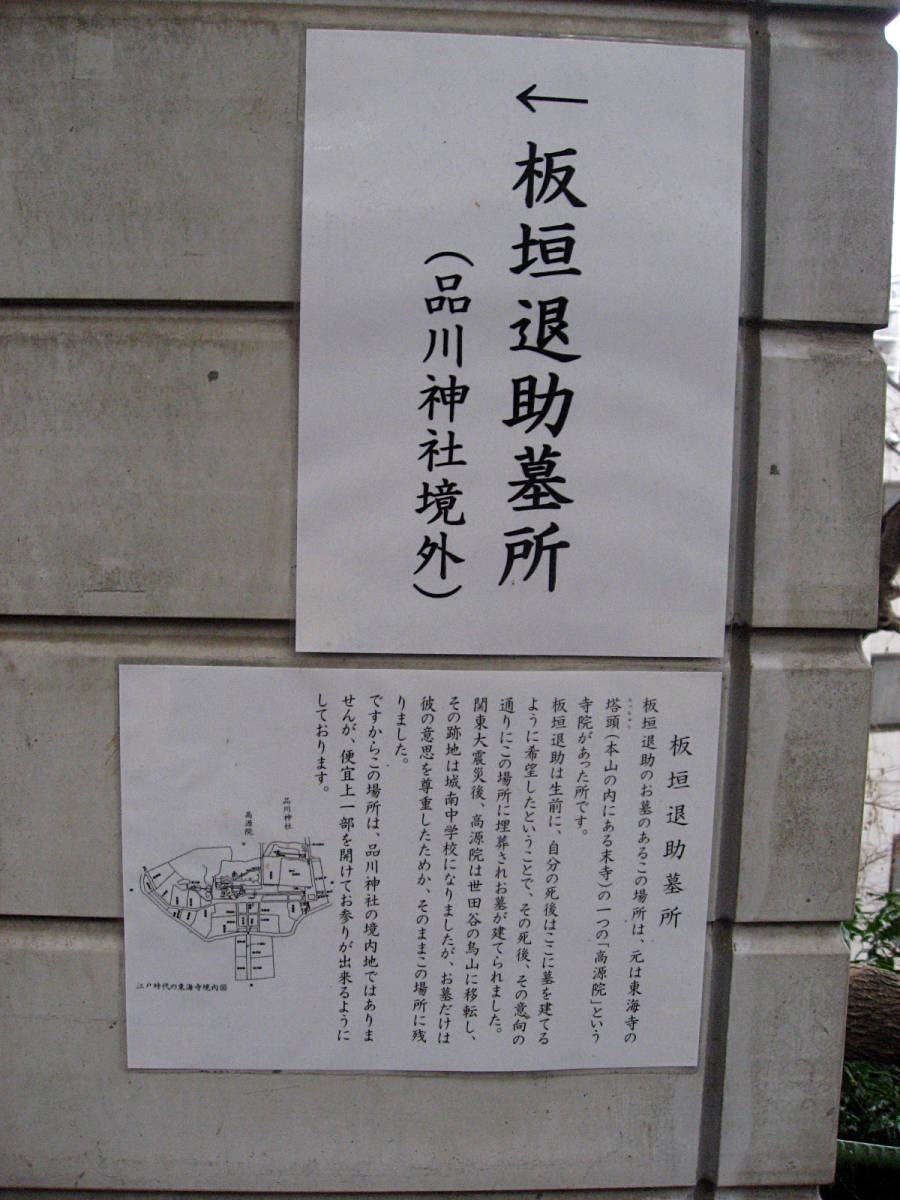 ← 板垣退助墓所
（品川神社境外）
板垣退助墓所
板垣退助のお墓のあるこの場所は、元は東海寺の
塔頭（本山の内にある末寺）の一つの「高源院」という
寺院があった所です。
板垣退助は生前に、自分の死後はここに墓を建てる
ように希望したということで、その死後、その意向の
通りにこの場所に埋葬されお墓が建てられました。
関東大震災後、高源院は世田谷の烏山に移転し、
その跡地は城南中学校になりましたが、お墓だけは
彼の意思を尊重したためか、そのままこの場所に残
りました。
ですからこの場所は、品川神社の境内地ではありま
せんが、便宜上一部を開けてお参りが出来るように
しております。
品川神社
高源院
江戸時代の東海寺境内図